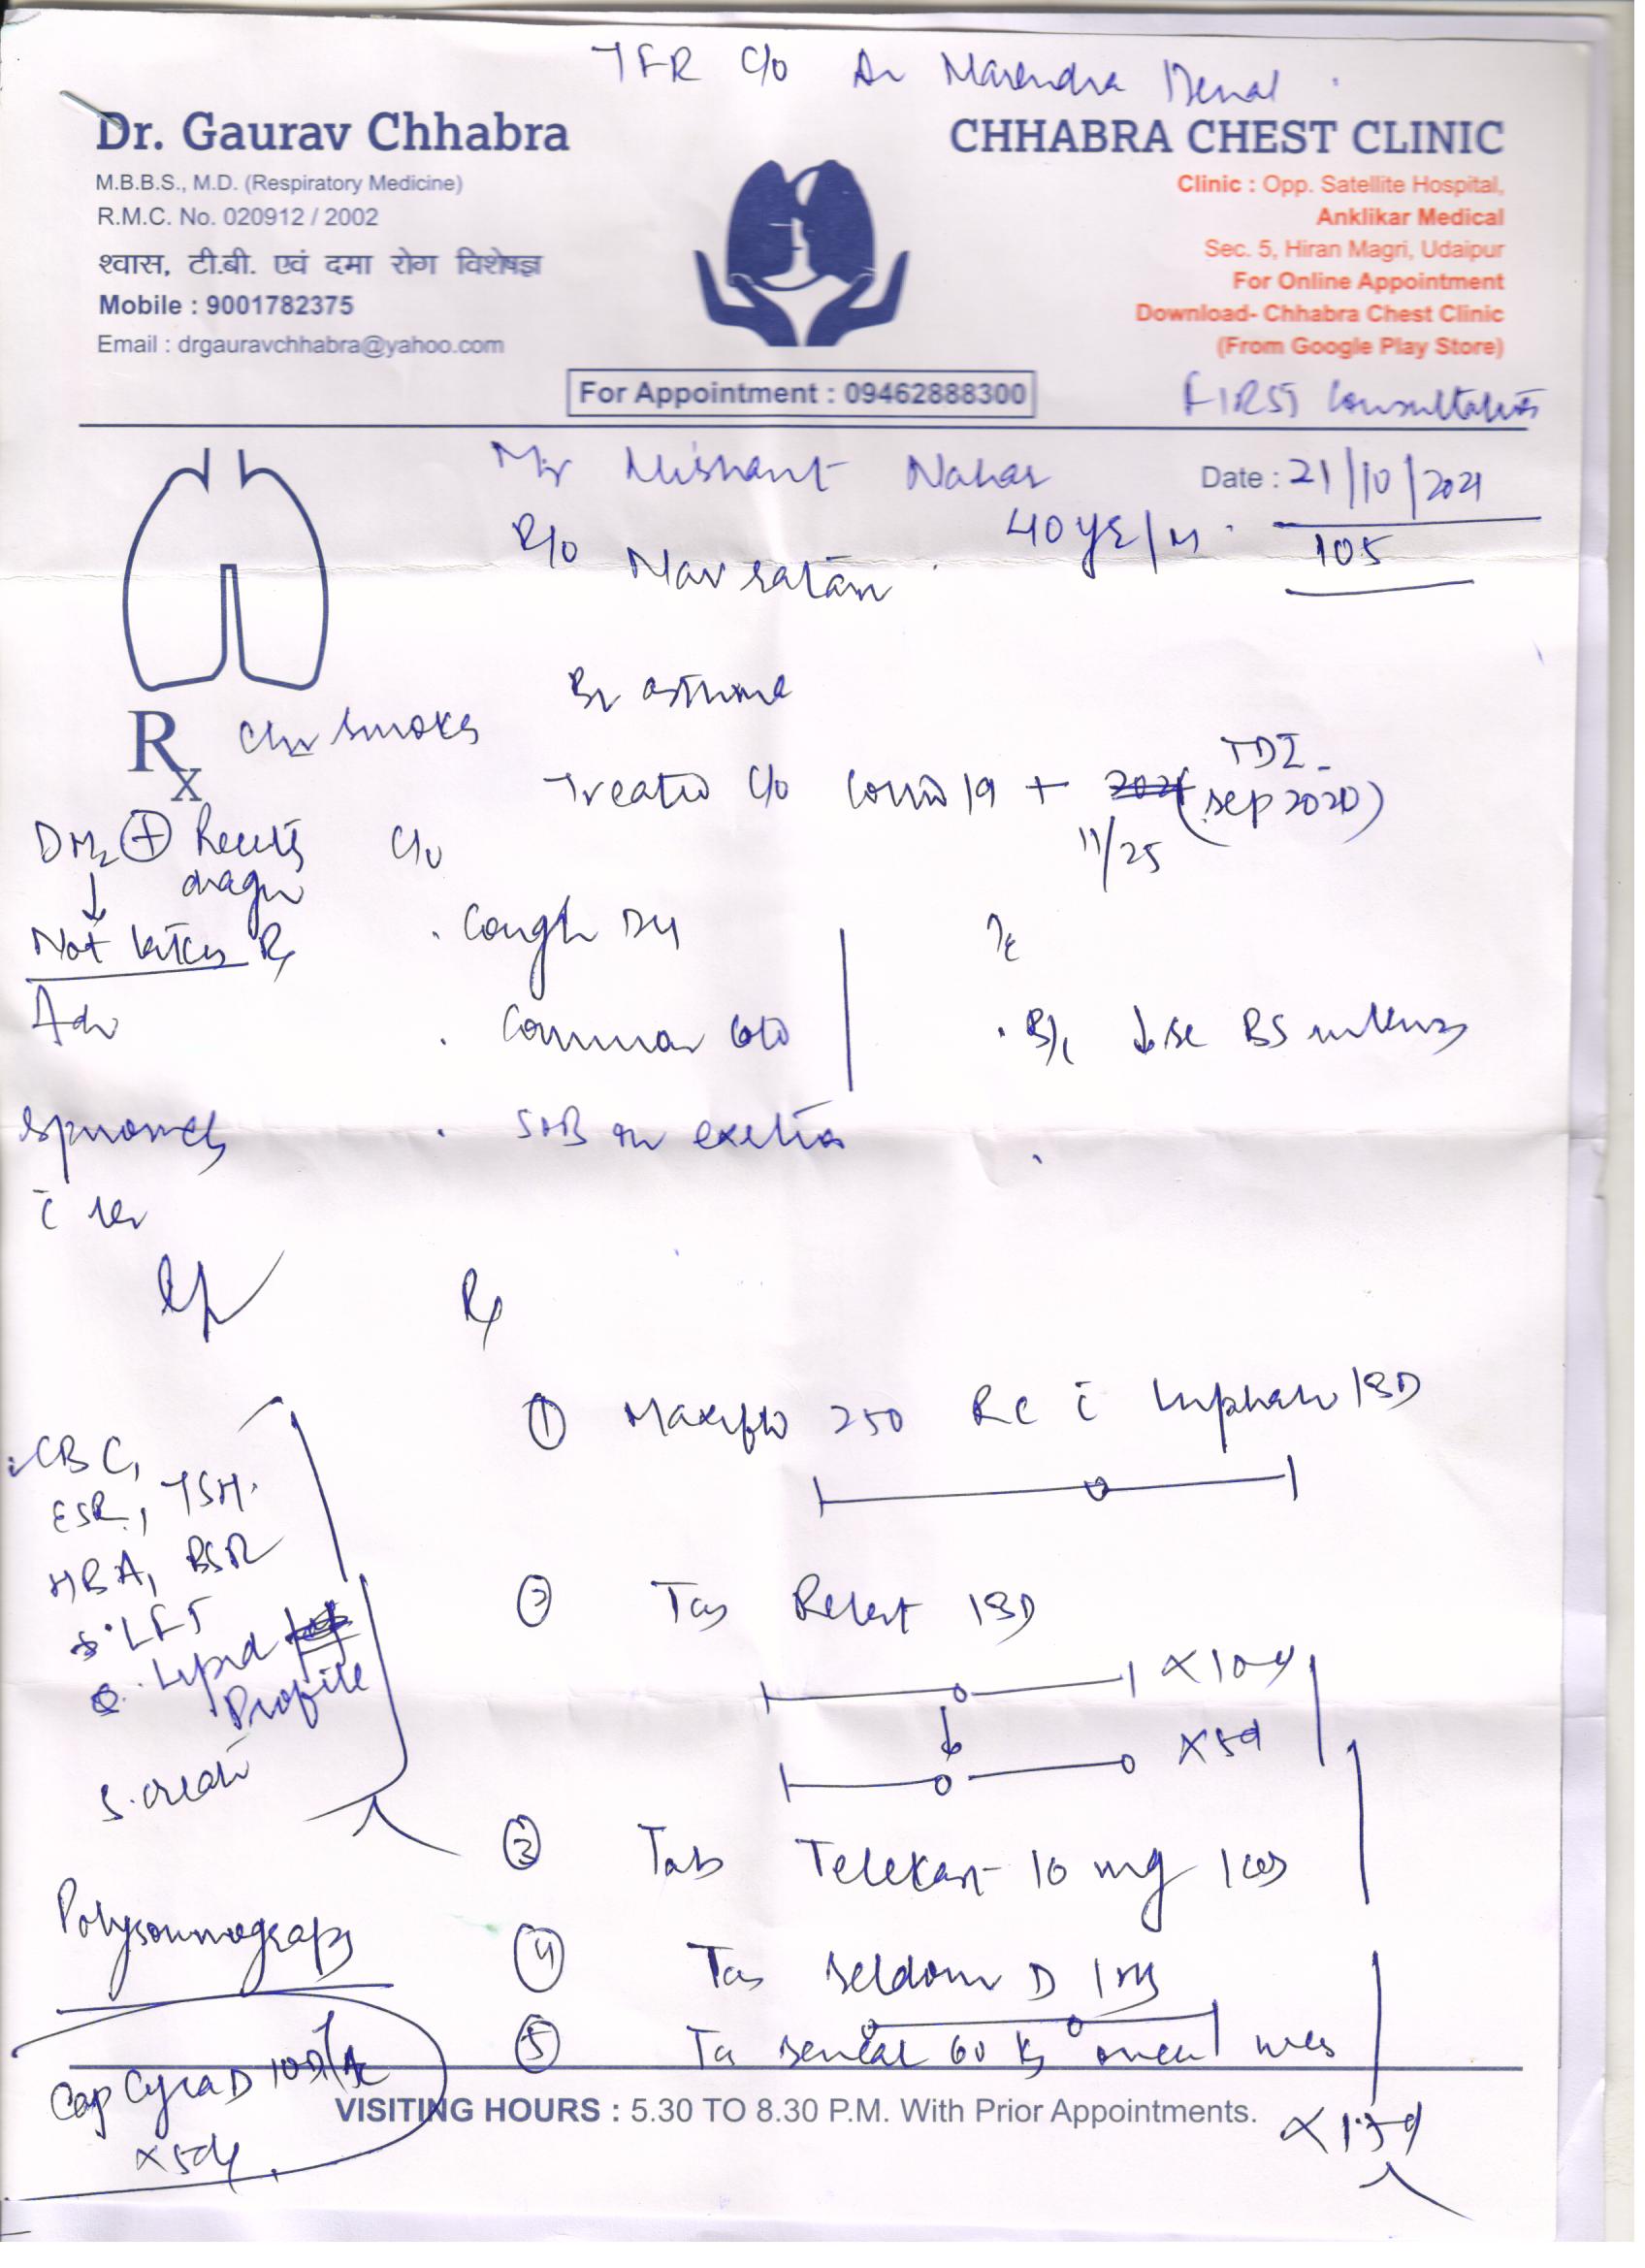 TFR C/o Dr Narendra
Dr. Gaurav Chhabra
M.B.B.S., M.D. (Respiratory Medicine)
R.M.C. No. 020912 / 2002
श्वास, टी.बी. एवं दमा रोग विशेषज्ञ
Mobile : 9001782375
Email : drgauravchhabra@yahoo.com
CHHABRA CHEST CLINIC
Clinic : Opp. Satellite Hospital,
Anklikar Medical
Sec. 5, Hiran Magri, Udaipur
For Online Appointment
Download- Chhabra Chest Clinic
(From Google Play Store)
For Appointment : 09462888300
FIRST Consultation
Mr Nishant Nahar
Date : 21/10/2021
R/o Navratan
40 yrs/M
105
Br asthma
Rx
Chr smoker
Treated C/o Covid 19 +
TDI
(Sep 2020)
11/25
DM2 + Recently
diagn
Not taken Rx
Adv
C/o
. Cough
. Common Cold
. SOB on exertion
. B/L ↓se BS intensity
Spirometry
c̄ rev
Rx
CBC,
ESR, TSH.
HBA, BSR
LFT
Lipid
Profile
S. creatin
Polysomnography
① Maxiflo 250 RC c̄ Luphaler 1BD
② Tab Relent 1BD
x 10d
x 5d
③ Tab Telekast 10 mg 1 HS
④ Tab Seldom D
⑤ Ta 60 K once weekly
Cap Cyra D 1 OD
x 5d
VISITING HOURS : 5.30 TO 8.30 P.M. With Prior Appointments.
x 15d